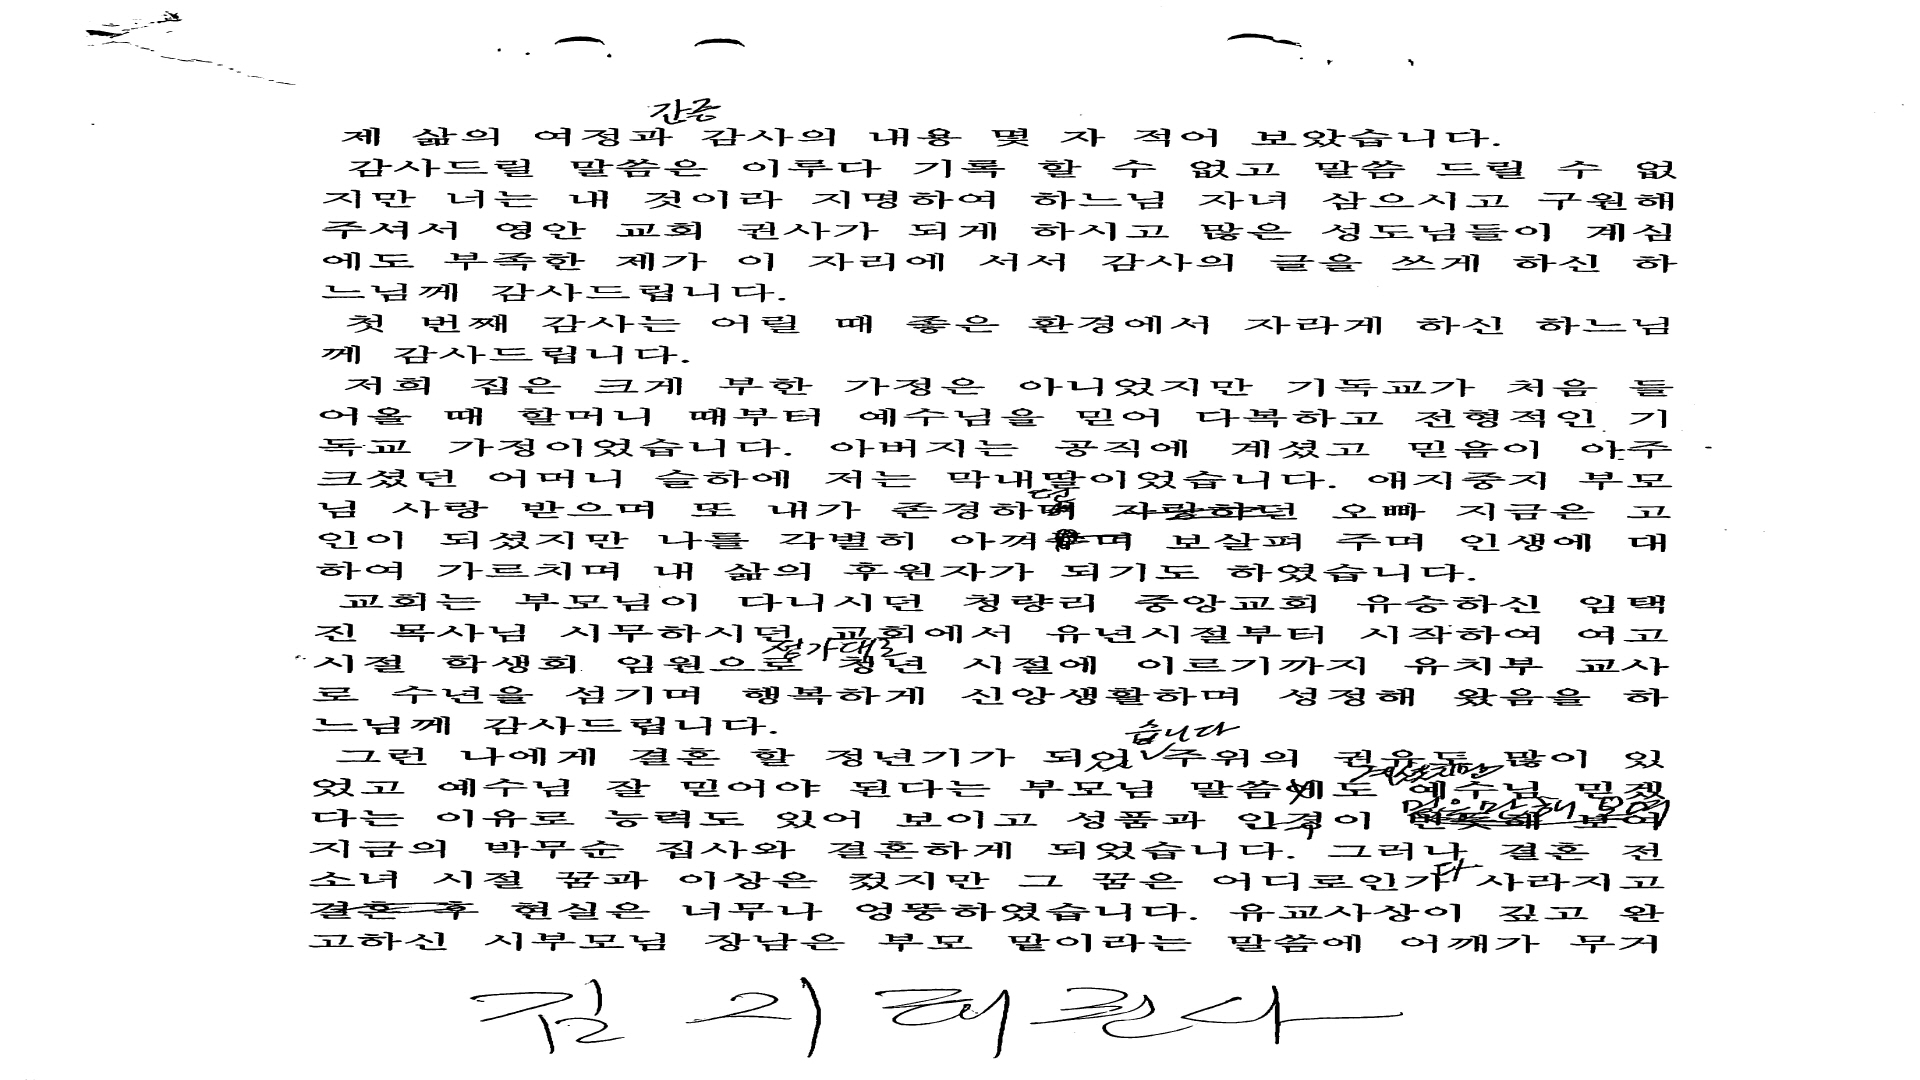 간증
제 삶의 여정과 감사의 내용 몇 자 적어 보았습니다.
감사드릴 말씀은 이루다 기록 할 수 없고 말씀 드릴 수 없
지만 너는 내 것이라 지명하여 하느님 자녀 삼으시고 구원해
주셔서 영안 교회 권사가 되게 하시고 많은 성도님들이 계심
에도 부족한 제가 이 자리에 서서 감사의 글을 쓰게 하신 하
느님께 감사드립니다.
첫 번째 감사는 어릴 때 좋은 환경에서 자라게 하신 하느님
께 감사드립니다.
저희 집은 크게 부한 가정은 아니었지만 기독교가 처음 들
어올 때 할머니 때부터 예수님을 믿어 다복하고 전형적인 기
독교 가정이었습니다. 아버지는 공직에 계셨고 믿음이 아주
크셨던 어머니 슬하에 저는 막내딸이었습니다. 애지중지 부모
던
님 사랑 받으며 또 내가 존경하며 자랑하던 오빠 지금은 고
인이 되셨지만 나를 각별히 아껴주며 보살펴 주며 인생에 대
하여 가르치며 내 삶의 후원자가 되기도 하였습니다.
교회는 부모님이 다니시던 청량리 중앙교회 유승하신 임택
진 목사님 시무하시던 교회에서 유년시절부터 시작하여 여고
성가대로
시절 학생회 임원으로 청년 시절에 이르기까지 유치부 교사
로 수년을 섬기며 행복하게 신앙생활하며 성정해 왔음을 하
느님께 감사드립니다.
습니다
그런 나에게 결혼 할 정년기가 되었 주위의 권유도 많이 있
계셨지만
었고 예수님 잘 믿어야 된다는 부모님 말씀에도 예수님 믿겠
다는 이유로 능력도 있어 보이고 성품과 인정이 보여
지금의 박무순 집사와 결혼하게 되었습니다. 그러나 결혼 전
다
소녀 시절 꿈과 이상은 컸지만 그 꿈은 어디로인가 사라지고
결혼 후 현실은 너무나 엉뚱하였습니다. 유교사상이 깊고 완
고하신 시부모님 장남은 부모 말이라는 말씀에 어깨가 무거
권사